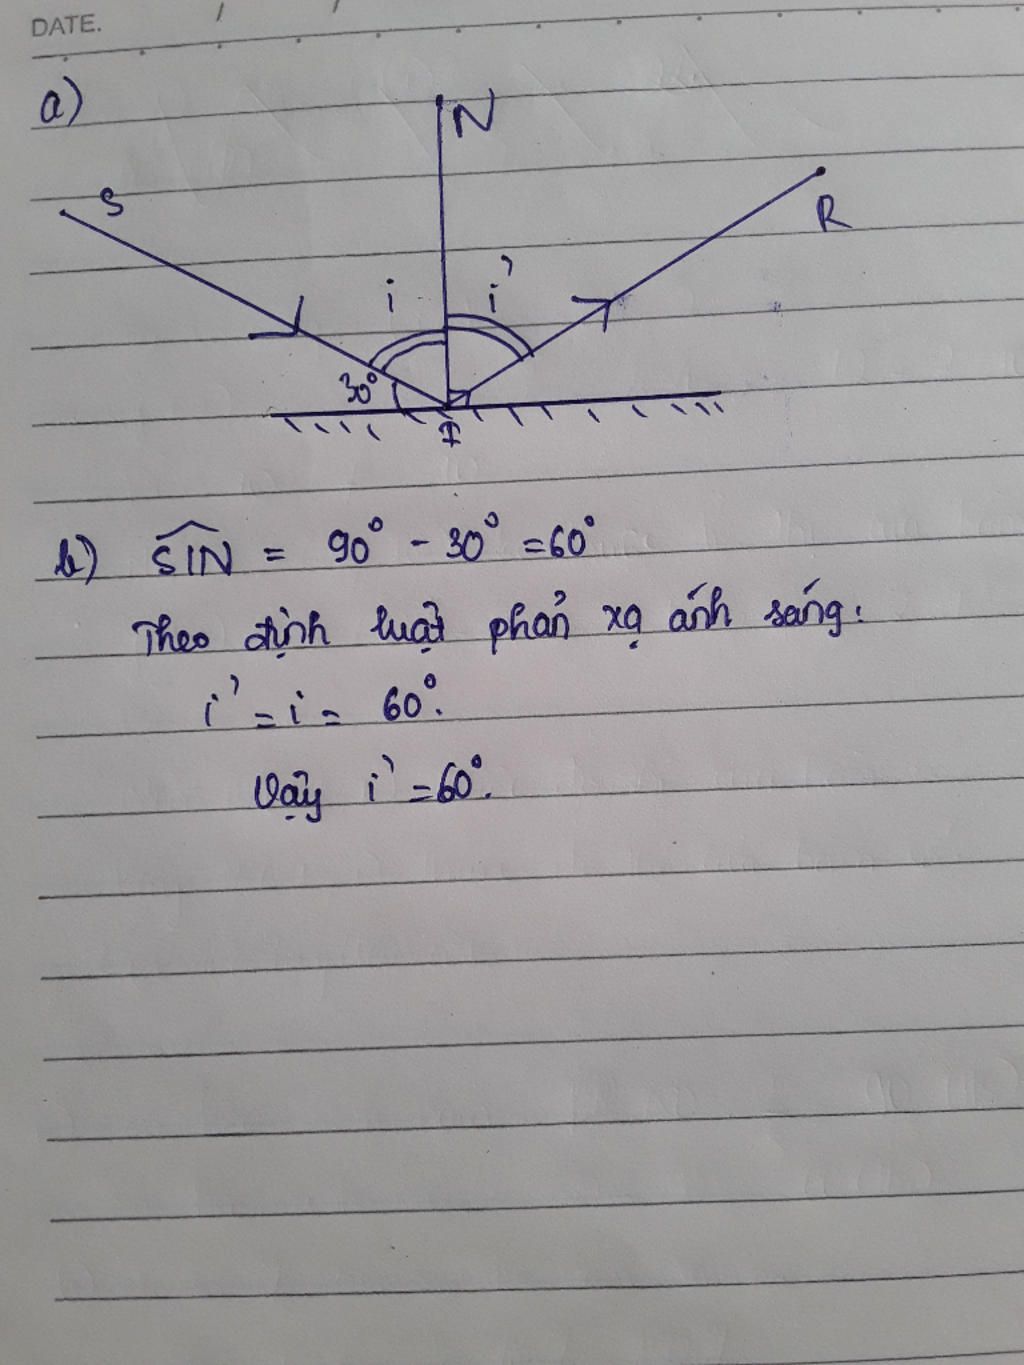 DATE. / /
a)
N
S
R
i i'
30°
I
b) SIN = 90° - 30° = 60°
Theo định luật phản xạ ánh sáng:
i' = i = 60°.
Vậy i' = 60°.